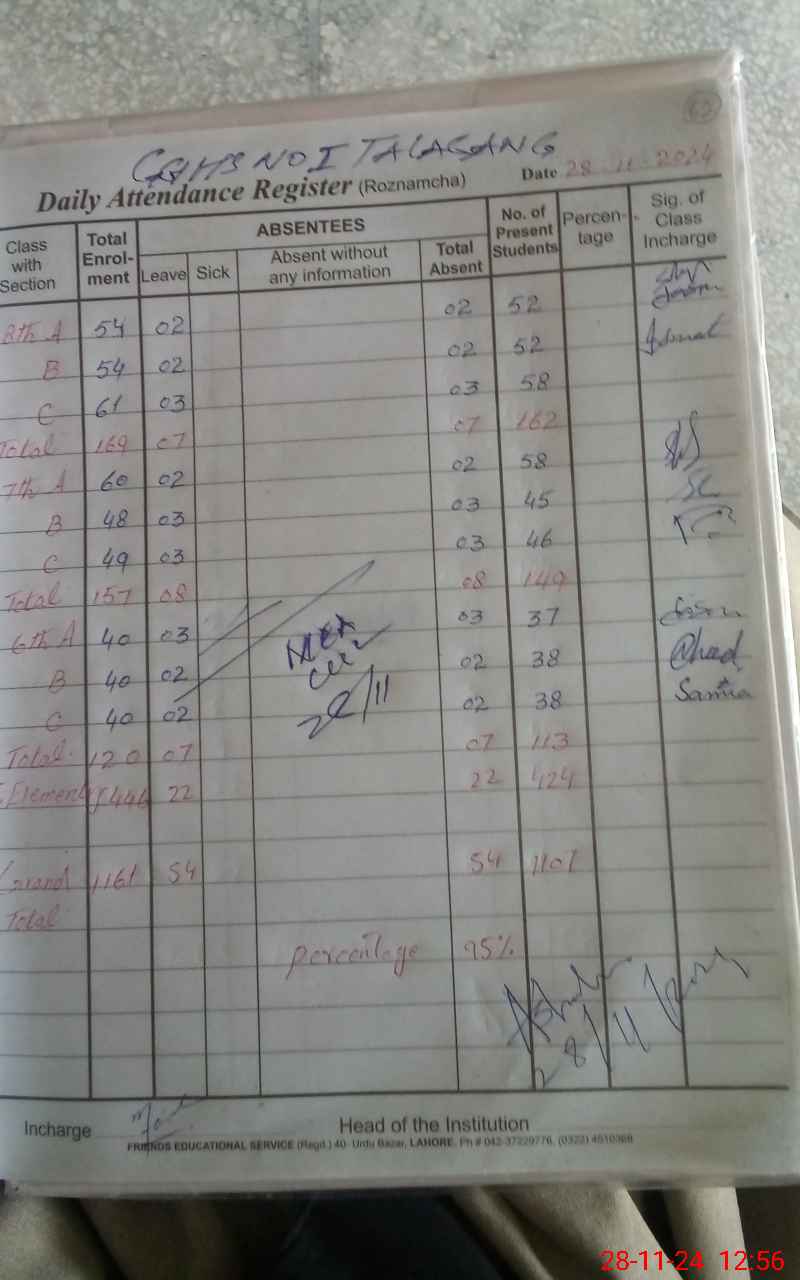 62
GGHS NO I TALAGANG
Daily Attendance Register (Roznamcha) Date 28-11-2024
Class with Section Total Enrol-ment ABSENTEES Leave Sick Absent without any information Total Absent No. of Present Students Percen-tage Sig. of Class Incharge
8th A 54 02 02 52
B 54 02 02 52
C 61 03 03 58
Total 169 07 07 162
7th A 60 02 02 58
B 48 03 03 45
C 49 03 03 46
Total 157 08 08 149
6th A 40 03 03 37
B 40 02 02 38
C 40 02 02 38 Samia
Total 120 07 07 113
Element 446 22 22 424
Grand 1161 54 54 1107
Total
percentage 95%
28/11
Incharge Head of the Institution
FRIENDS EDUCATIONAL SERVICE (Regd.) 40- Urdu Bazar, LAHORE. Ph # 042-37229776, (0322) 4510368
28-11-24 12:56